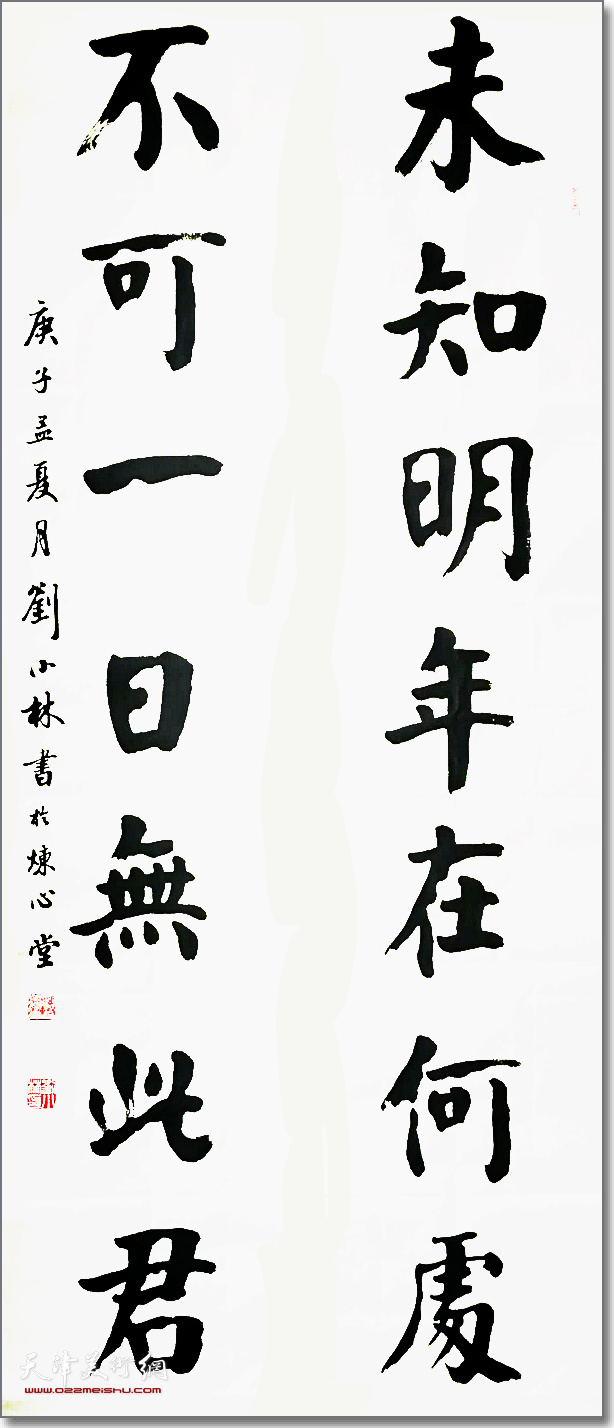 未知明年在何處
不可一日無此君
庚子孟夏月劉小林書於煉心堂
天津美術網
www.022meishu.com